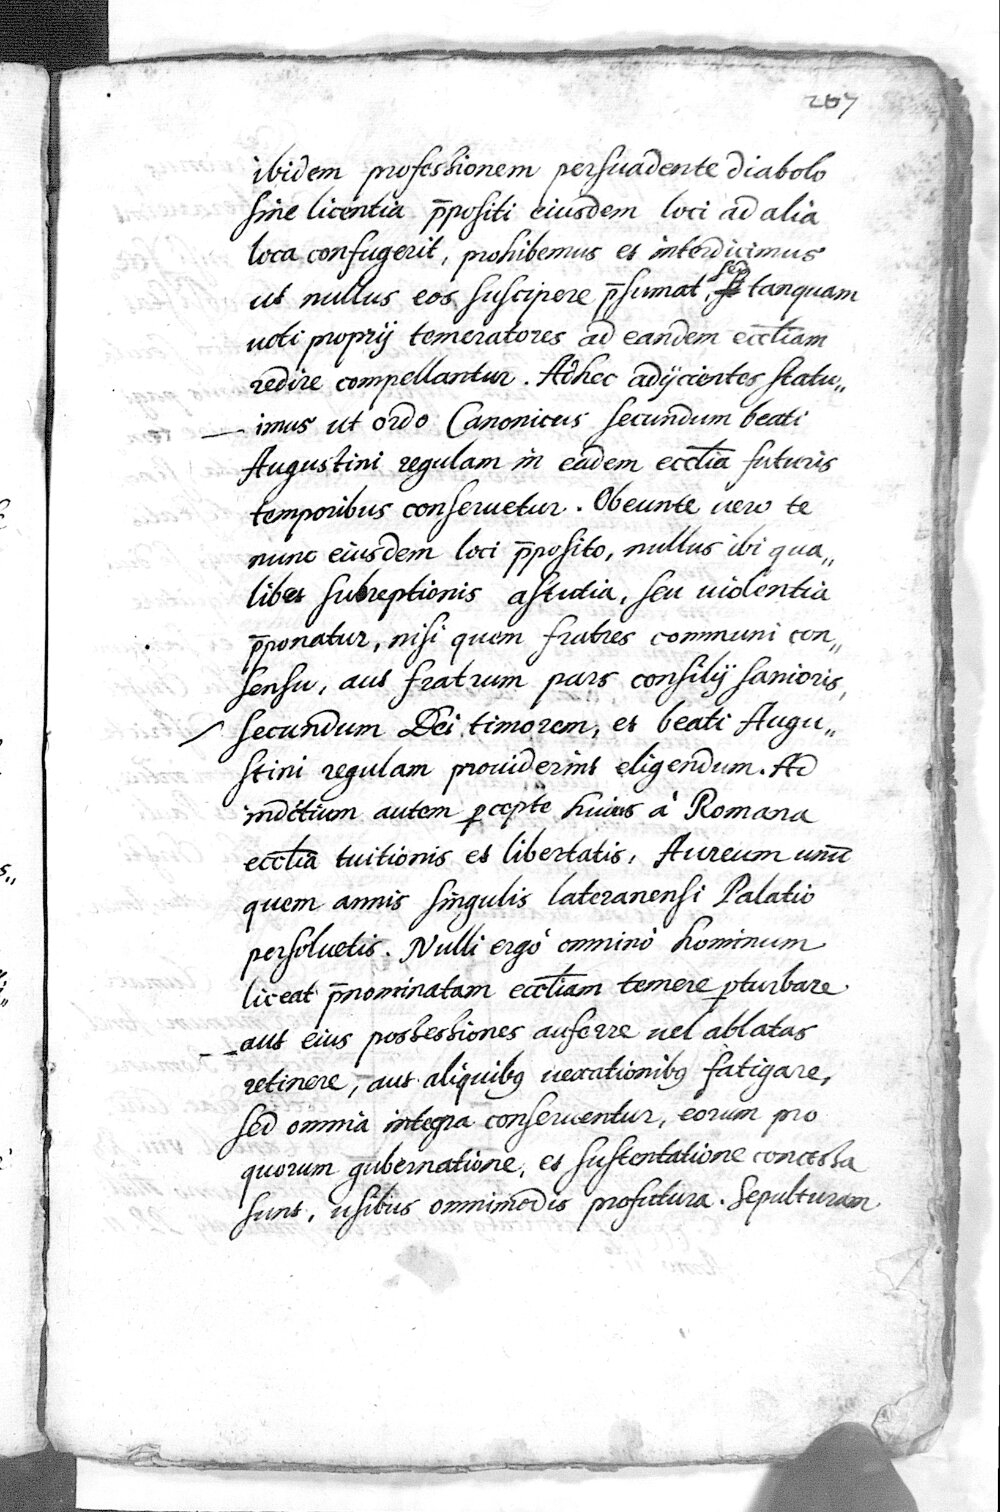 207
ibidem professionem persuadente diabolo
sine licentia p̄positi eiusdem loci ad alia
loca confugerit, prohibemus et interdicimus
ut nullus eos suscipere p̄sumat, sed tanquam
uoti proprij temeratores ad eandem eccl̄iam
redire compellantur. Adhec adijcientes statu„
imus ut ordo Canonicus secundum beati
Augustini regulam in eadem eccl̄ia futuris
temporibus conseruetur. Obeunte uero te
nunc eiusdem loci p̄posito, nullus ibi qua„
libet subreptionis astutia, seu uiolentia
p̄ponatur, nisi quem fratres communi con„
sensu, aut fratrum pars consilij sanioris,
secundum Dei timorem, et beati Augu„
stini regulam prouiderint eligendum. Ad
indicium autem ꝑcepte huius à Romana
eccl̄ia tuitionis et libertatis, Aureum unū
quem annis singulis lateranensi Palatio
persoluetis. Nulli ergò omninò hominum
liceat p̄nominatam eccl̄iam temere ꝑturbare
aut eius possessiones auferre uel ablatas
retinere, aut aliquibꝫ uexationibꝫ fatigare,
sed omnia integra conseruentur, eorum pro
quorum gubernatione, et sustentatione concessa
sunt, usibus omnimodis profutura. Sepulturam